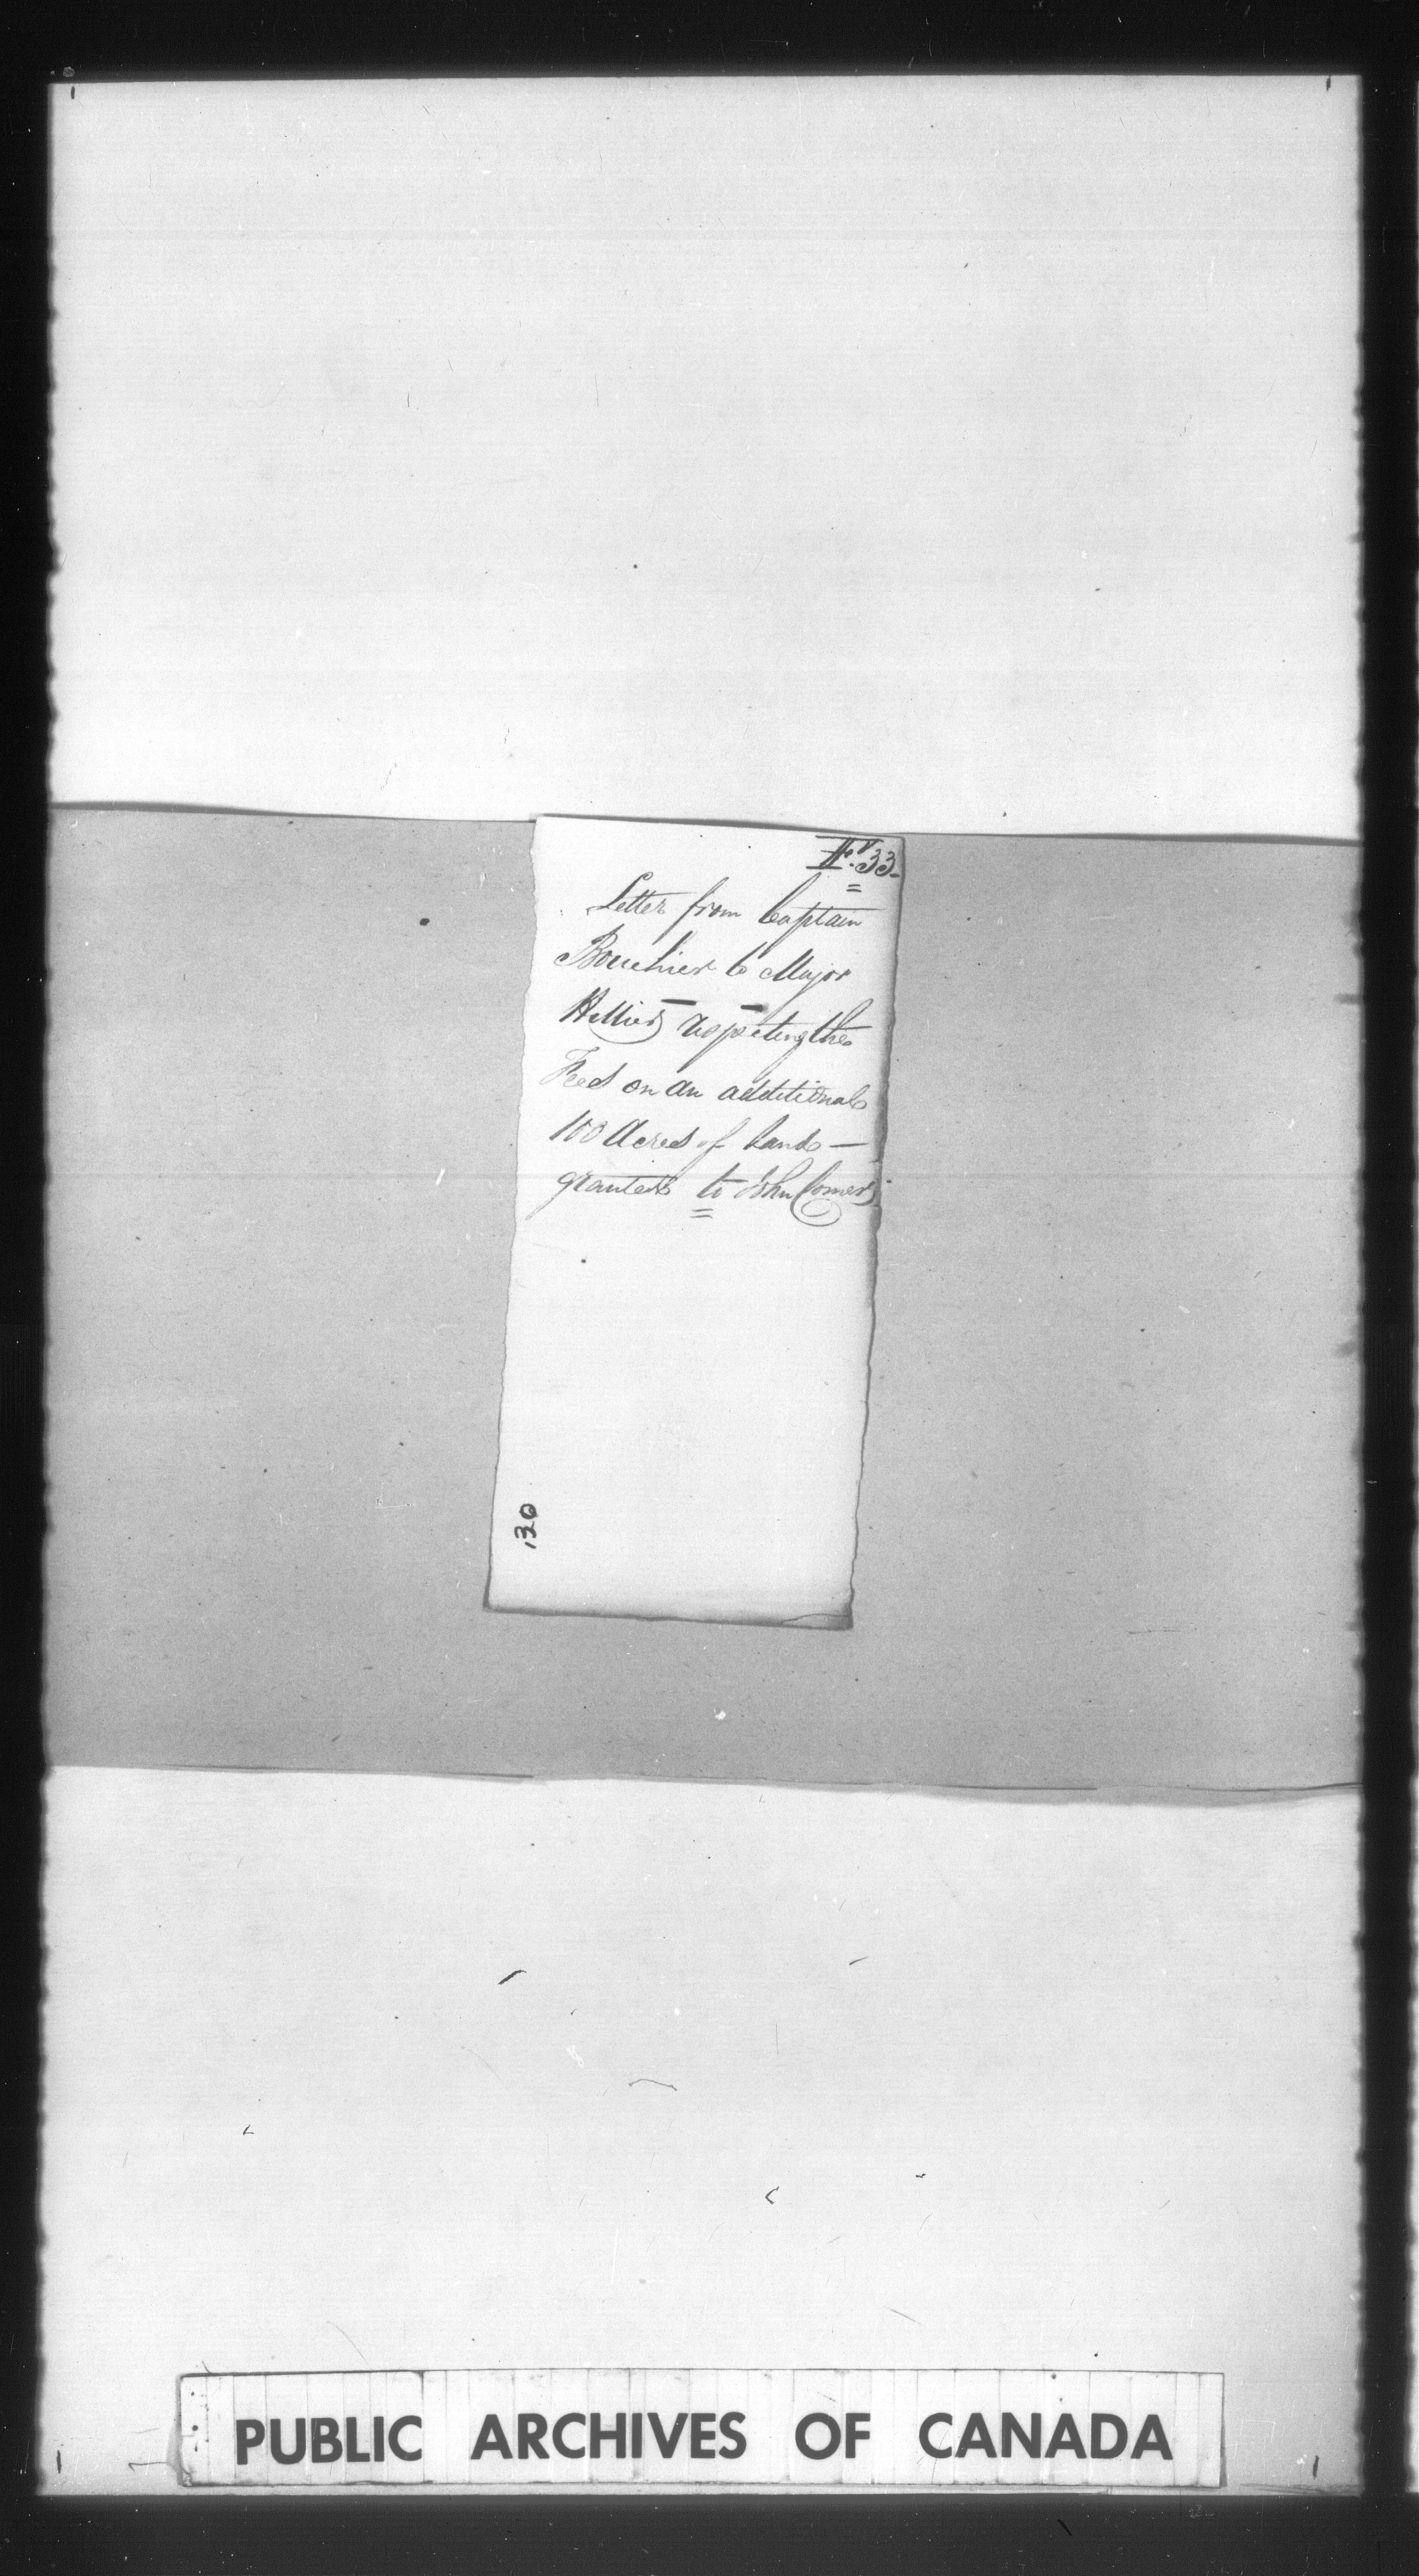 33.
Letter from Captain
Bourchier to Major
Hillier respecting the
Fees on an additional
100 Acres of Land —
granted to John Comer
130
PUBLIC ARCHIVES OF CANADA